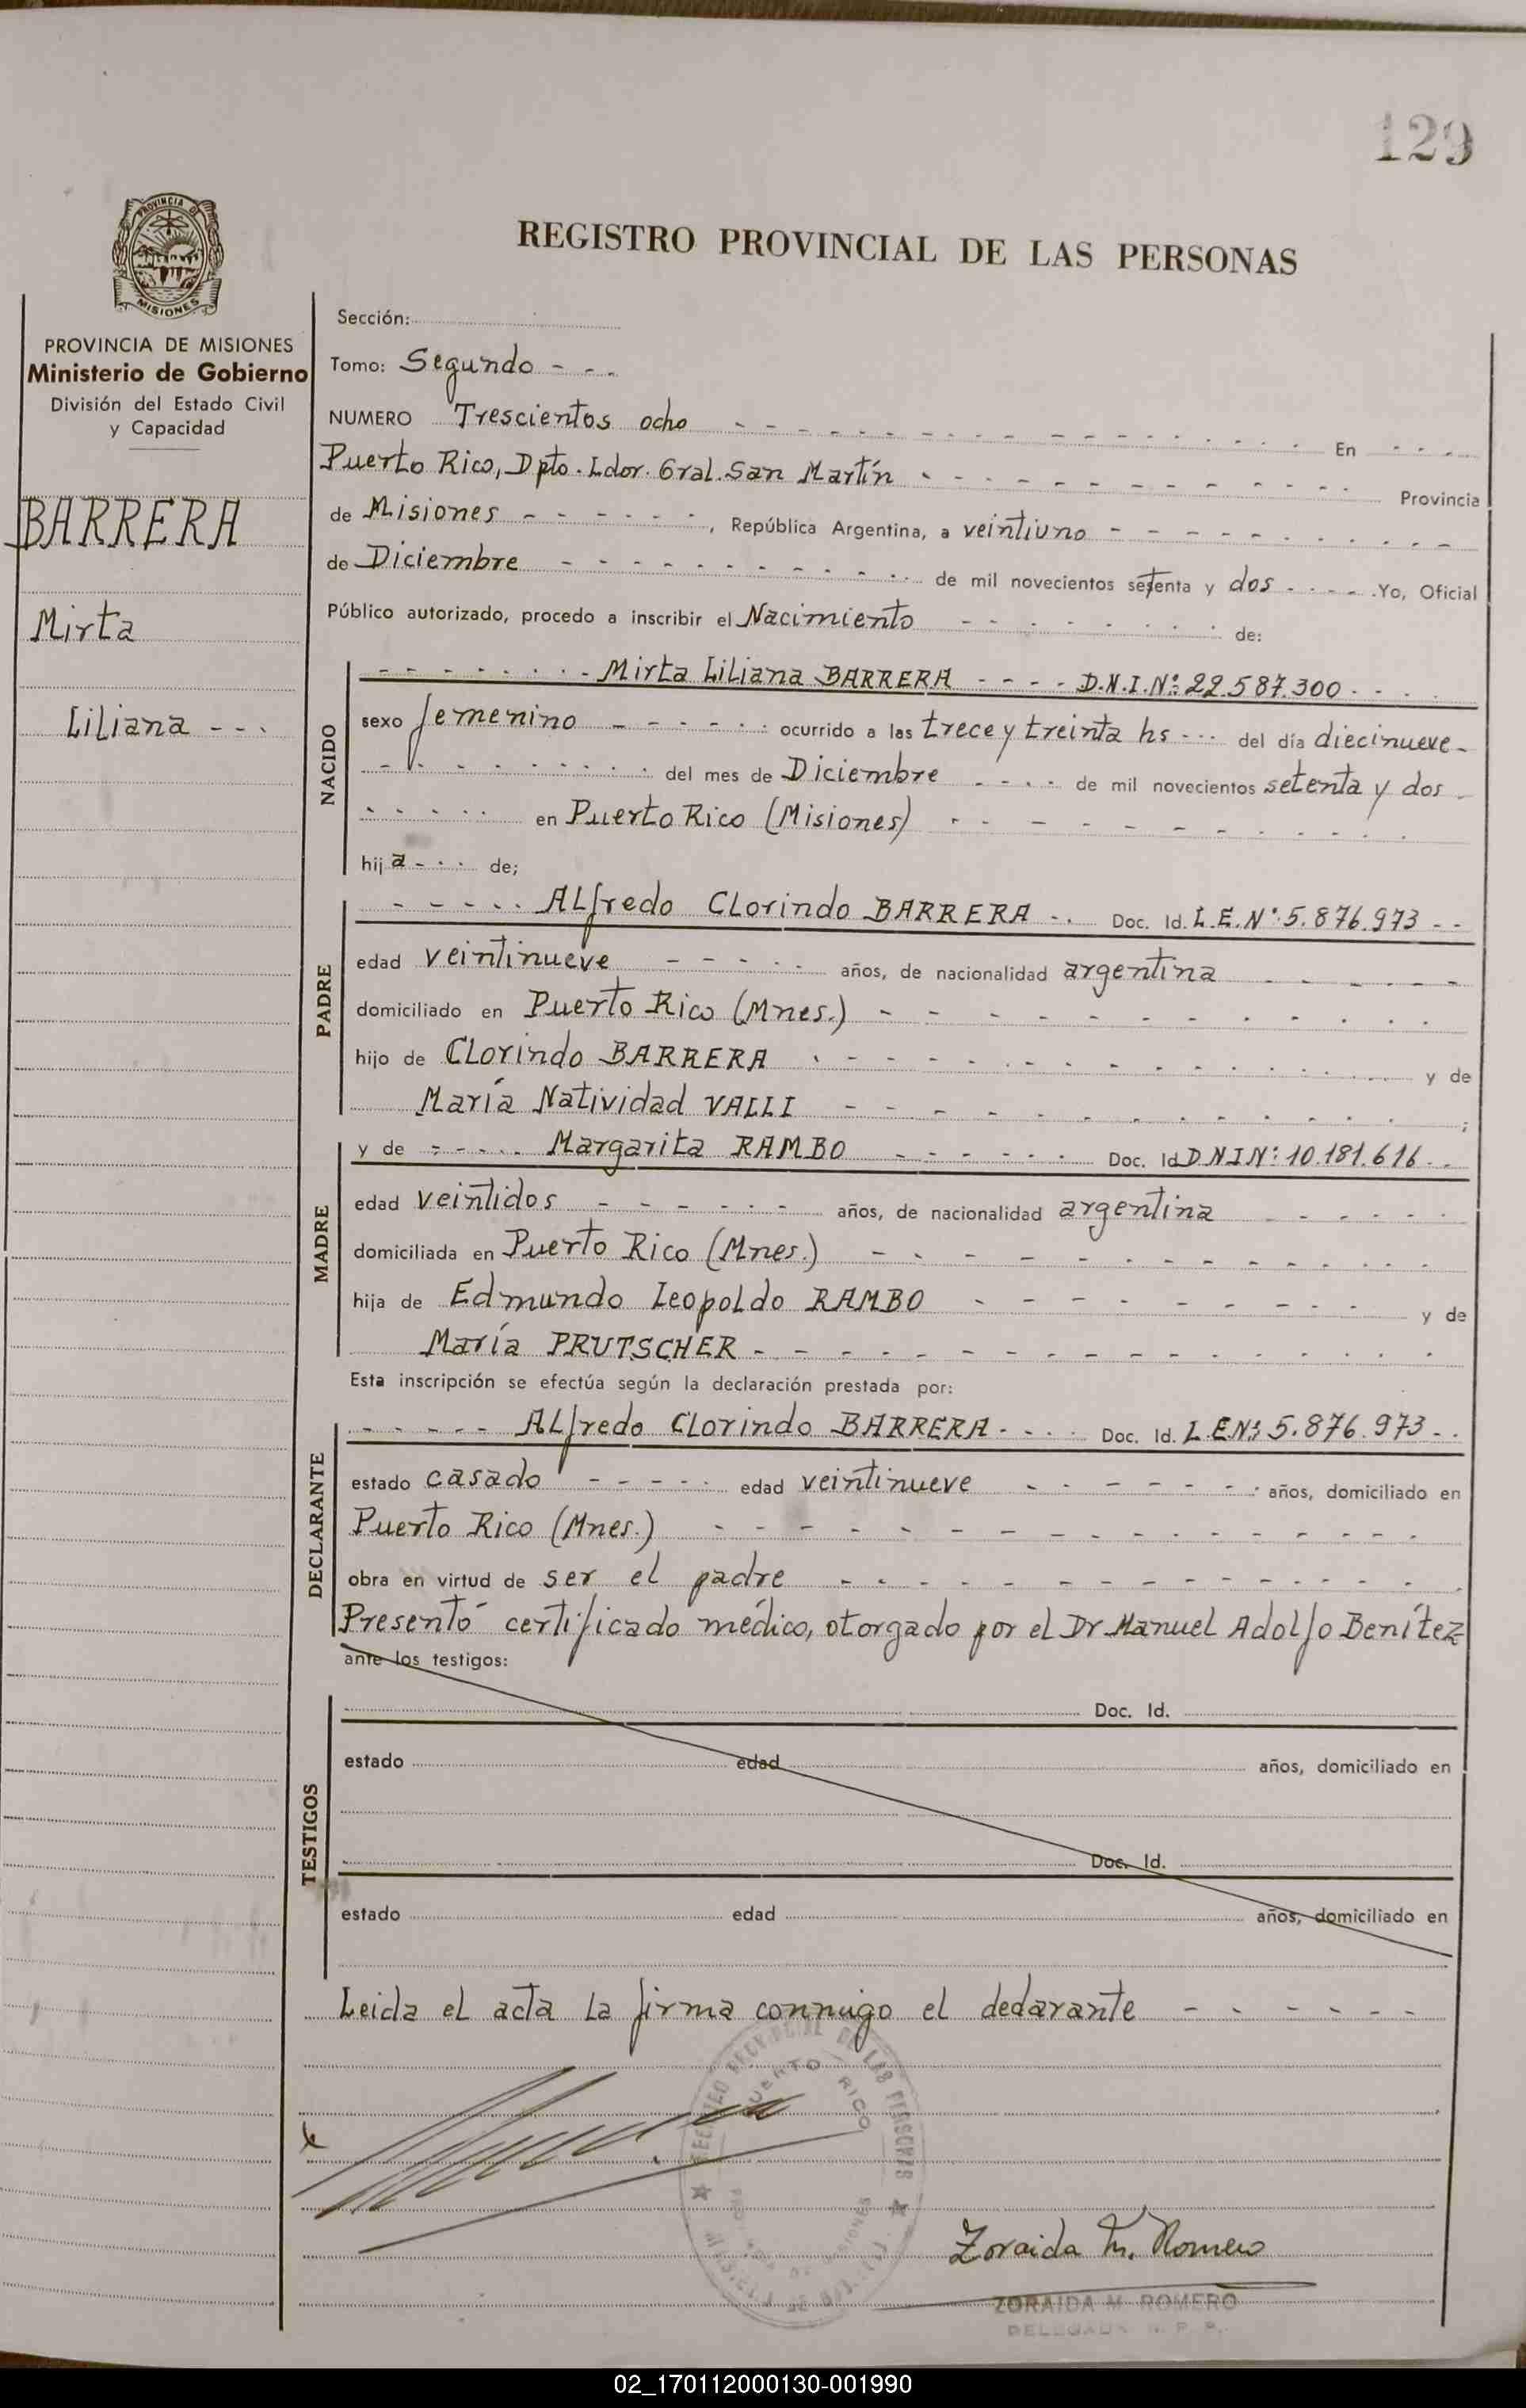 129
PROVINCIA DE
MISIONES
REGISTRO PROVINCIAL DE LAS PERSONAS
PROVINCIA DE MISIONES
Ministerio de Gobierno
División del Estado Civil
y Capacidad
BARRERA
Mirta
Liliana - - -
Sección:
Tomo: Segundo - - -
NUMERO Trescientos ocho - - - En - - -
Puerto Rico, Dpto. Ldor. Gral. San Martín - - - Provincia
de Misiones - - - , República Argentina, a veintiuno - - -
de Diciembre - - - de mil novecientos setenta y dos - - - Yo, Oficial
Público autorizado, procedo a inscribir el Nacimiento - - - de:
NACIDO
- - - Mirta Liliana BARRERA - - - D.N.I.Nº: 22.587.300 - - -
sexo femenino - - - ocurrido a las trece y treinta hs - - - del día diecinueve -
- - - del mes de Diciembre - - - de mil novecientos setenta y dos -
- - - en Puerto Rico (Misiones) - - -
hija - - - de;
PADRE
- - - Alfredo Clorindo BARRERA - - Doc. Id. L.E.Nº: 5.876.973 - -
edad veintinueve - - - años, de nacionalidad argentina - - -
domiciliado en Puerto Rico (Mnes.) - - -
hijo de Clorindo BARRERA - - - y de
María Natividad VALLI - - - ;
MADRE
y de - - - Margarita RAMBO - - - Doc. Id DNINº: 10.181.616 - -
edad veintidos - - - años, de nacionalidad argentina - - -
domiciliada en Puerto Rico (Mnes.) - - -
hija de Edmundo Leopoldo RAMBO - - - y de
María PRUTSCHER - - -
Esta inscripción se efectúa según la declaración prestada por:
DECLARANTE
- - - Alfredo Clorindo BARRERA - - - Doc. Id. L.E.Nº: 5.876.973 - -
estado casado - - - edad veintinueve - - - años, domiciliado en
Puerto Rico (Mnes.) - - -
obra en virtud de ser el padre - - -
Presentó certificado médico, otorgado por el Dr Manuel Adolfo Benítez
ante los testigos:
TESTIGOS
Doc. Id.
estado edad años, domiciliado en
Doc. Id.
estado edad años, domiciliado en
Leida el acta la firma conmigo el declarante - - -
PUERTO RICO
Zoraida M. Romero
ZORAIDA M. ROMERO
02_170112000130-001990